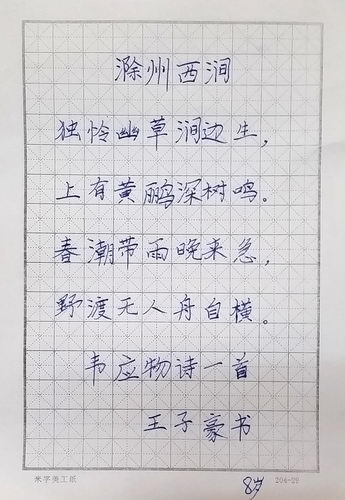 滁州西涧
独怜幽草涧边生，
上有黄鹂深树鸣。
春潮带雨晚来急，
野渡无人舟自横。
韦应物诗一首
王子豪书
米字美工纸 204-29
8岁